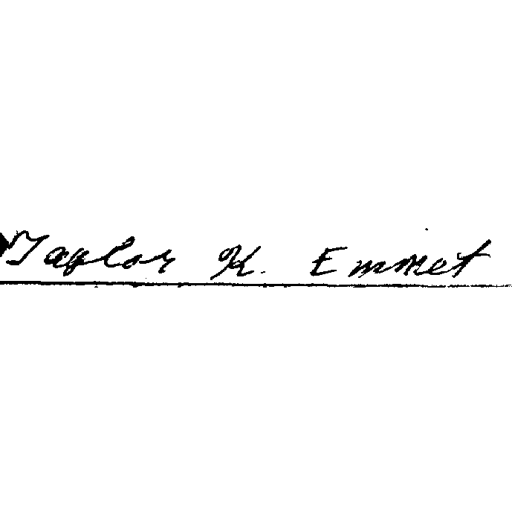 Taylor K. Emmet